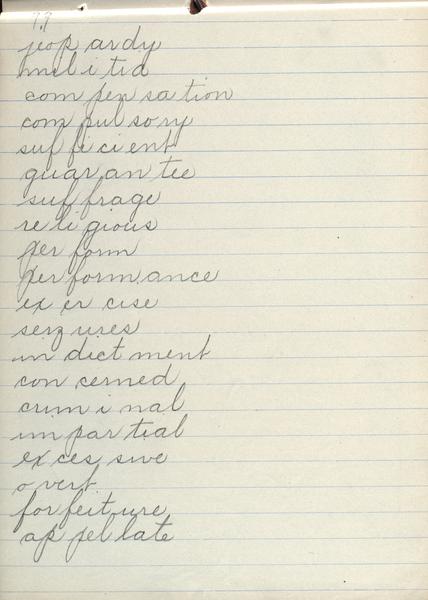 77
jeop ardy
mil i tia
com pen sa tion
com pul so ry
suf fi ci ent
guar an tee
suf frage
re li gious
per form
per form ance
ex er cise
seiz ures
in dict ment
con cerned
crim i nal
im par tial
ex ces sive
o vert
for feit ure
ap pel late